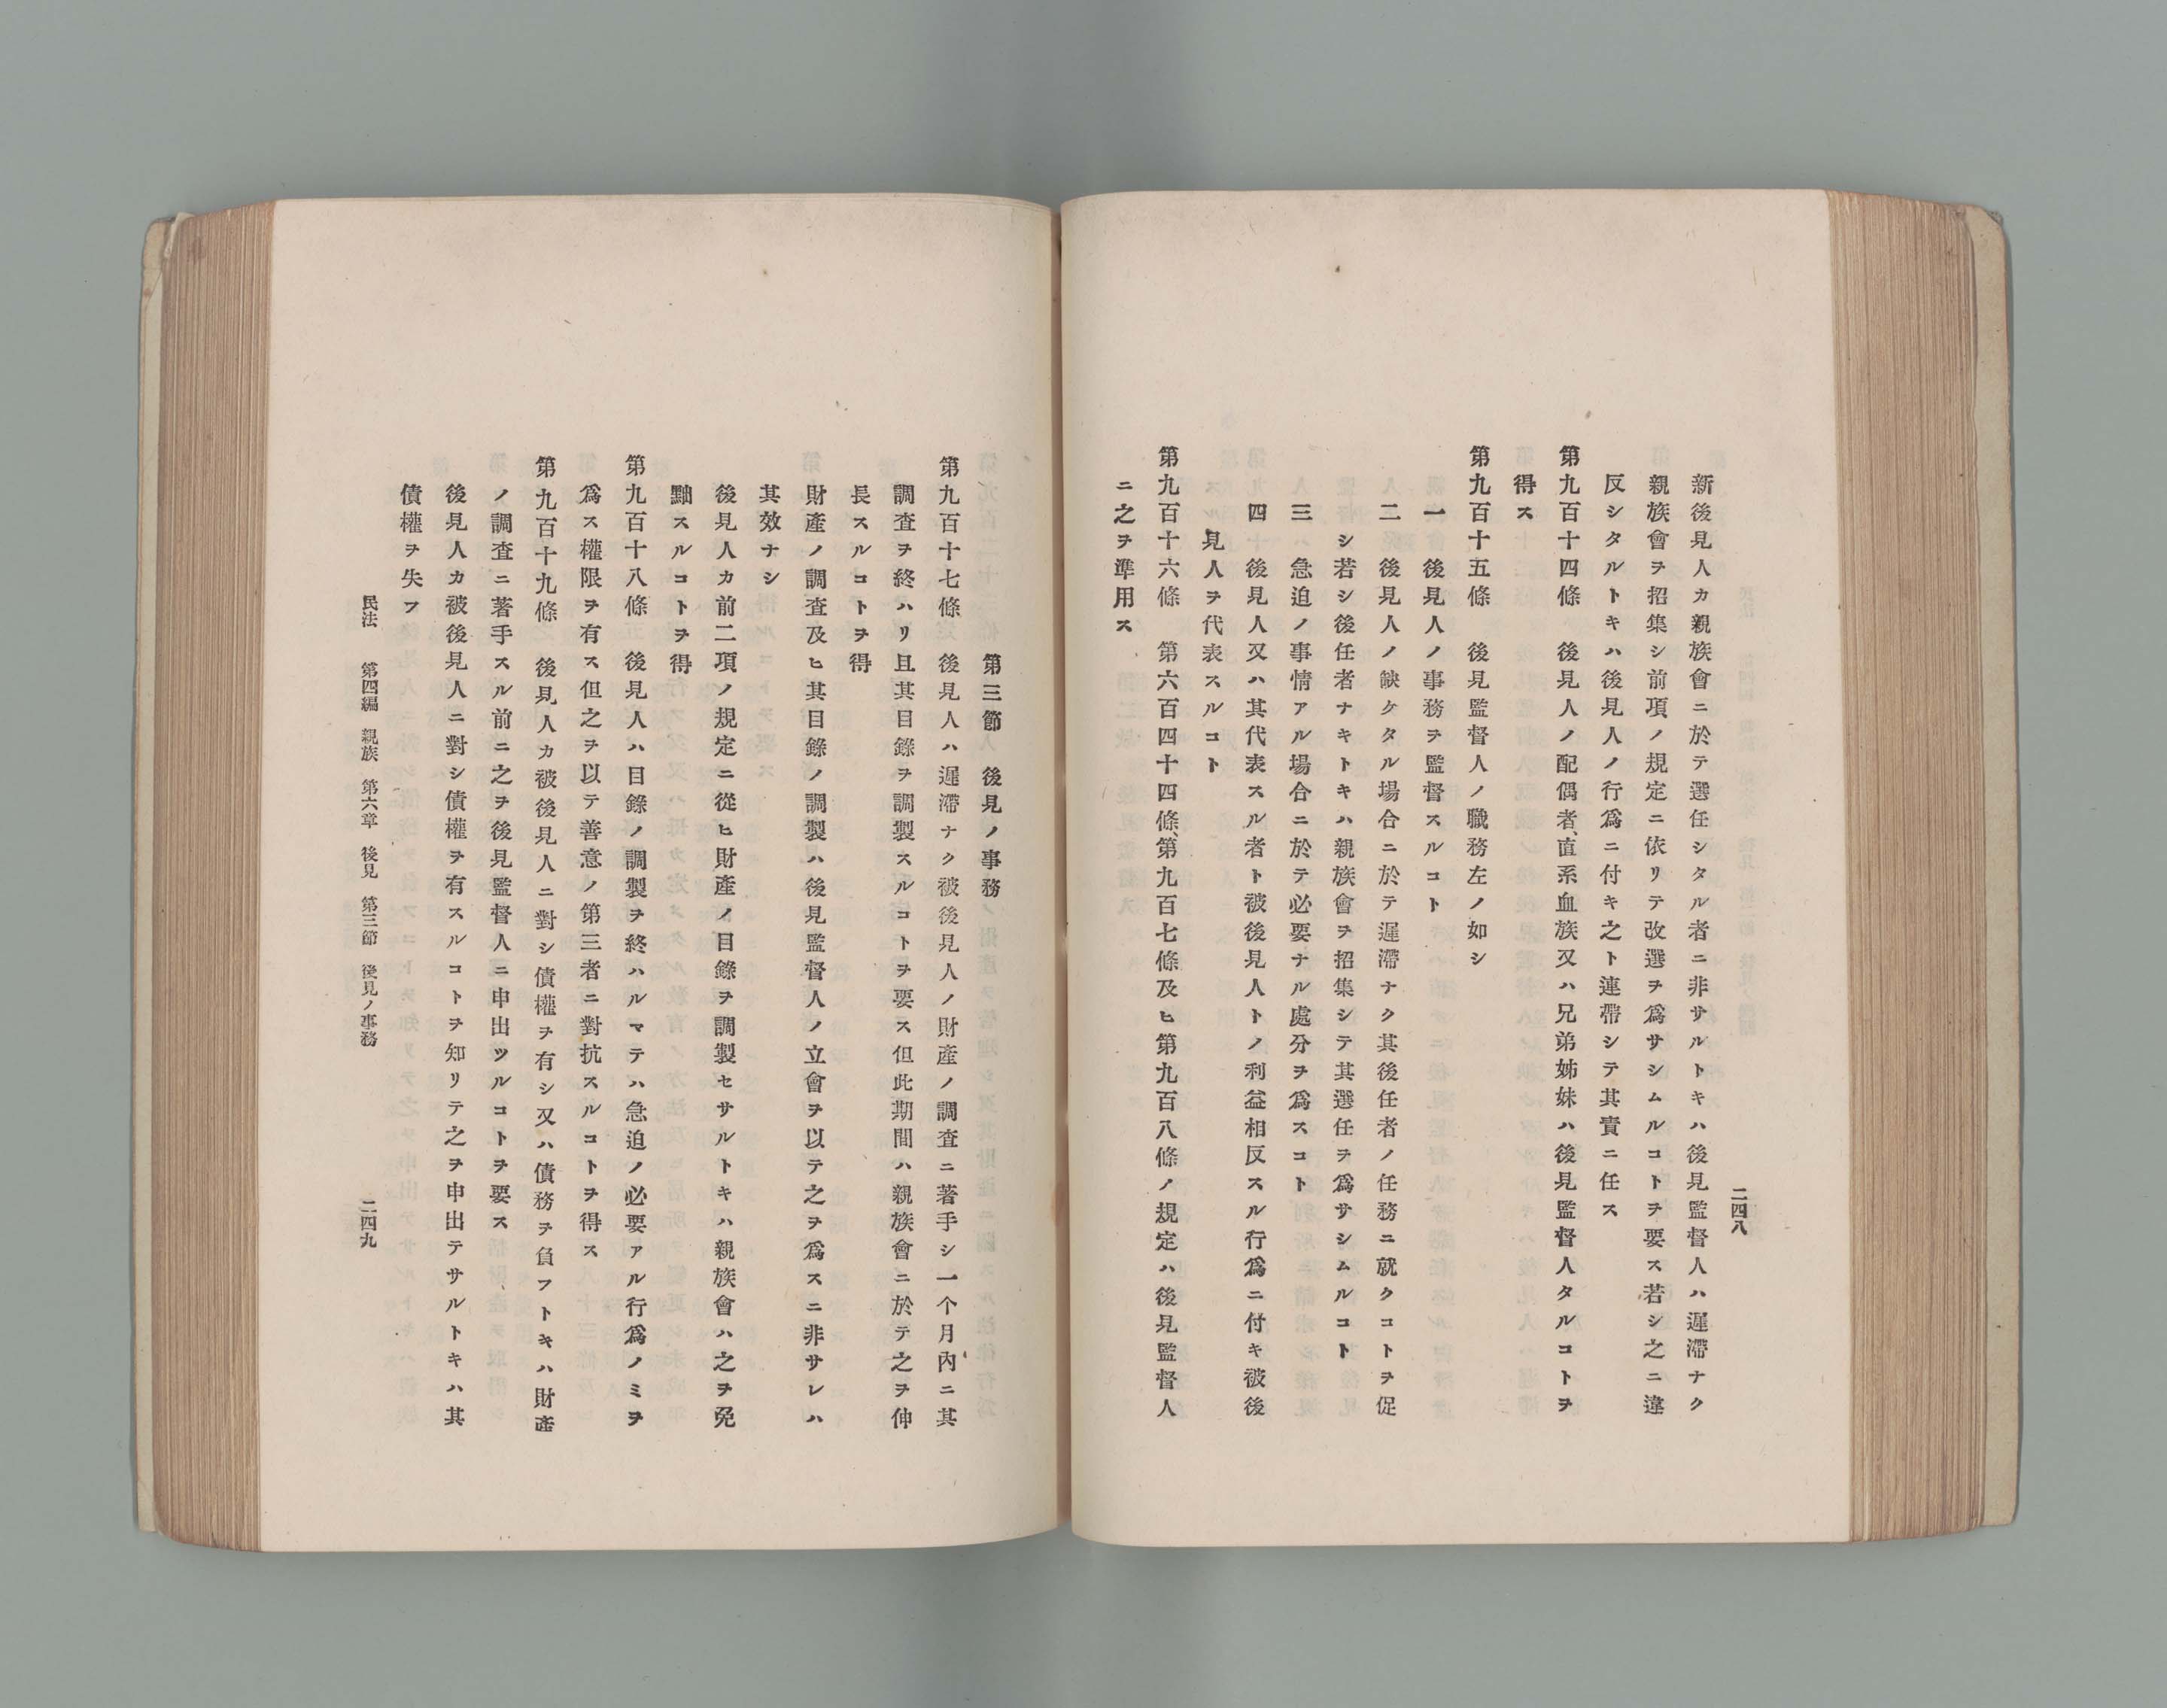 二四八
新後見人カ親族會ニ於テ選任シタル者ニ非サルトキハ後見監督人ハ遲滯ナク
親族會ヲ招集シ前項ノ規定ニ依リテ改選ヲ爲サシムルコトヲ要ス若シ之ニ違
反シタルトキハ後見人ノ行爲ニ付キ之ト連帶シテ其責ニ任ス
第九百十四條　後見人ノ配偶者、直系血族又ハ兄弟姊妹ハ後見監督人タルコトヲ
得ス
第九百十五條　後見監督人ノ職務左ノ如シ
一　後見人ノ事務ヲ監督スルコト
二　後見人ノ缺ケタル場合ニ於テ遲滯ナク其後任者ノ任務ニ就クコトヲ促
シ若シ後任者ナキトキハ親族會ヲ招集シテ其選任ヲ爲サシムルコト
三　急迫ノ事情アル場合ニ於テ必要ナル處分ヲ爲スコト
四　後見人又ハ其代表スル者ト被後見人トノ利益相反スル行爲ニ付キ被後
見人ヲ代表スルコト
第九百十六條　第六百四十四條、第九百七條及ヒ第九百八條ノ規定ハ後見監督人
ニ之ヲ準用ス
第三節　後見ノ事務
第九百十七條　後見人ハ遲滯ナク被後見人ノ財產ノ調査ニ著手シ一个月內ニ其
調査ヲ終ハリ且其目錄ヲ調製スルコトヲ要ス但此期間ハ親族會ニ於テ之ヲ伸
長スルコトヲ得
財產ノ調査及ヒ其目錄ノ調製ハ後見監督人ノ立會ヲ以テ之ヲ爲スニ非サレハ
其效ナシ
後見人カ前二項ノ規定ニ從ヒ財產ノ目錄ヲ調製セサルトキハ親族會ハ之ヲ免
黜スルコトヲ得
第九百十八條　後見人ハ目錄ノ調製ヲ終ハルマテハ急迫ノ必要アル行爲ノミヲ
爲ス權限ヲ有ス但之ヲ以テ善意ノ第三者ニ對抗スルコトヲ得ス
第九百十九條　後見人カ被後見人ニ對シ債權ヲ有シ又ハ債務ヲ負フトキハ財產
ノ調査ニ著手スル前ニ之ヲ後見監督人ニ申出ツルコトヲ要ス
後見人カ被後見人ニ對シ債權ヲ有スルコトヲ知リテ之ヲ申出テサルトキハ其
債權ヲ失フ
民法　第四編　親族　第六章　後見　第三節　後見ノ事務　二四九